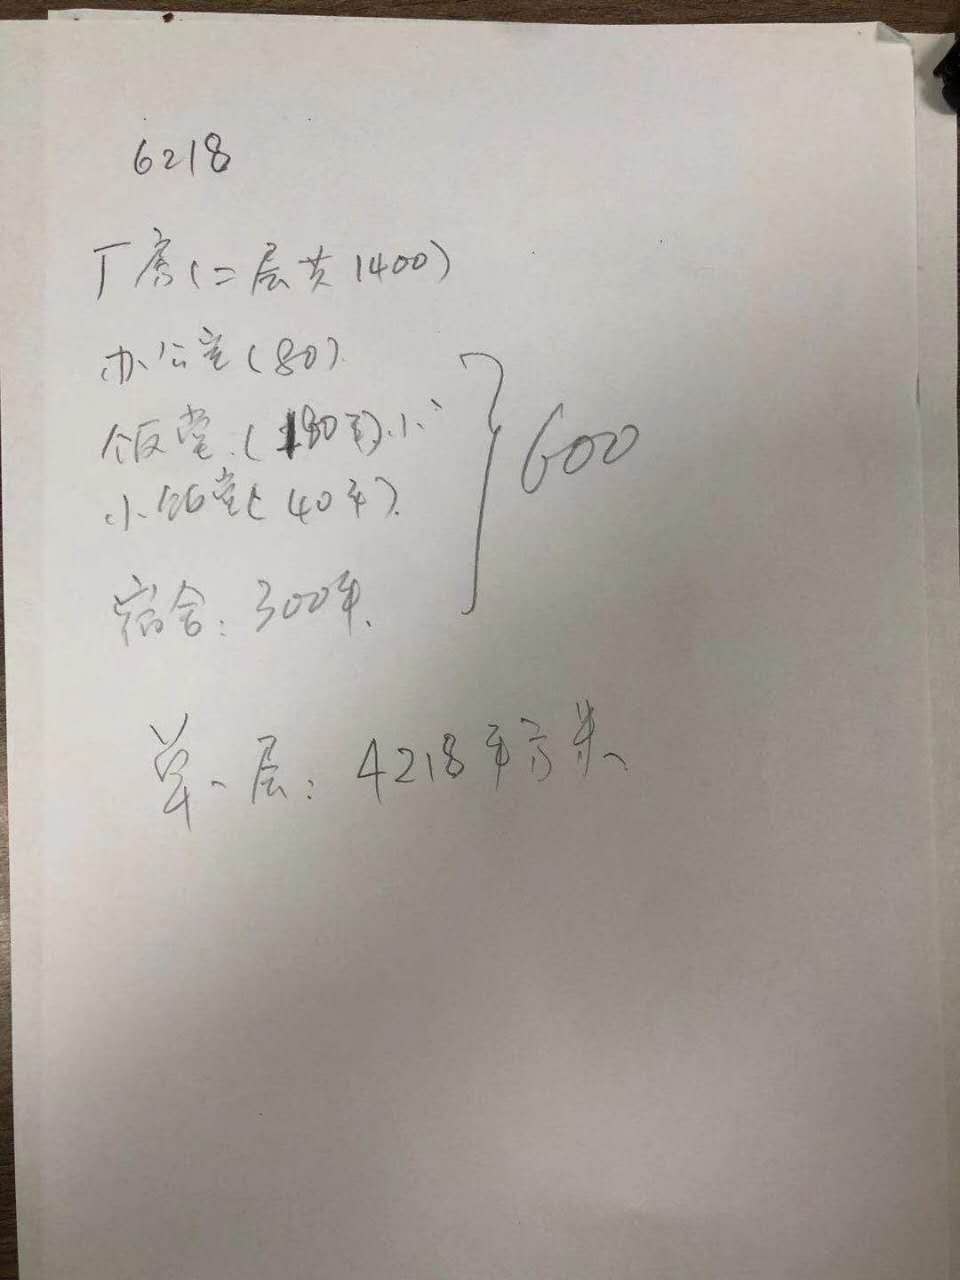 6218
厂房(二层共1400)
办公室(80)
饭堂.(180平).小
小饭堂(40平).
宿舍:300平.
600
单一层:4218平方米